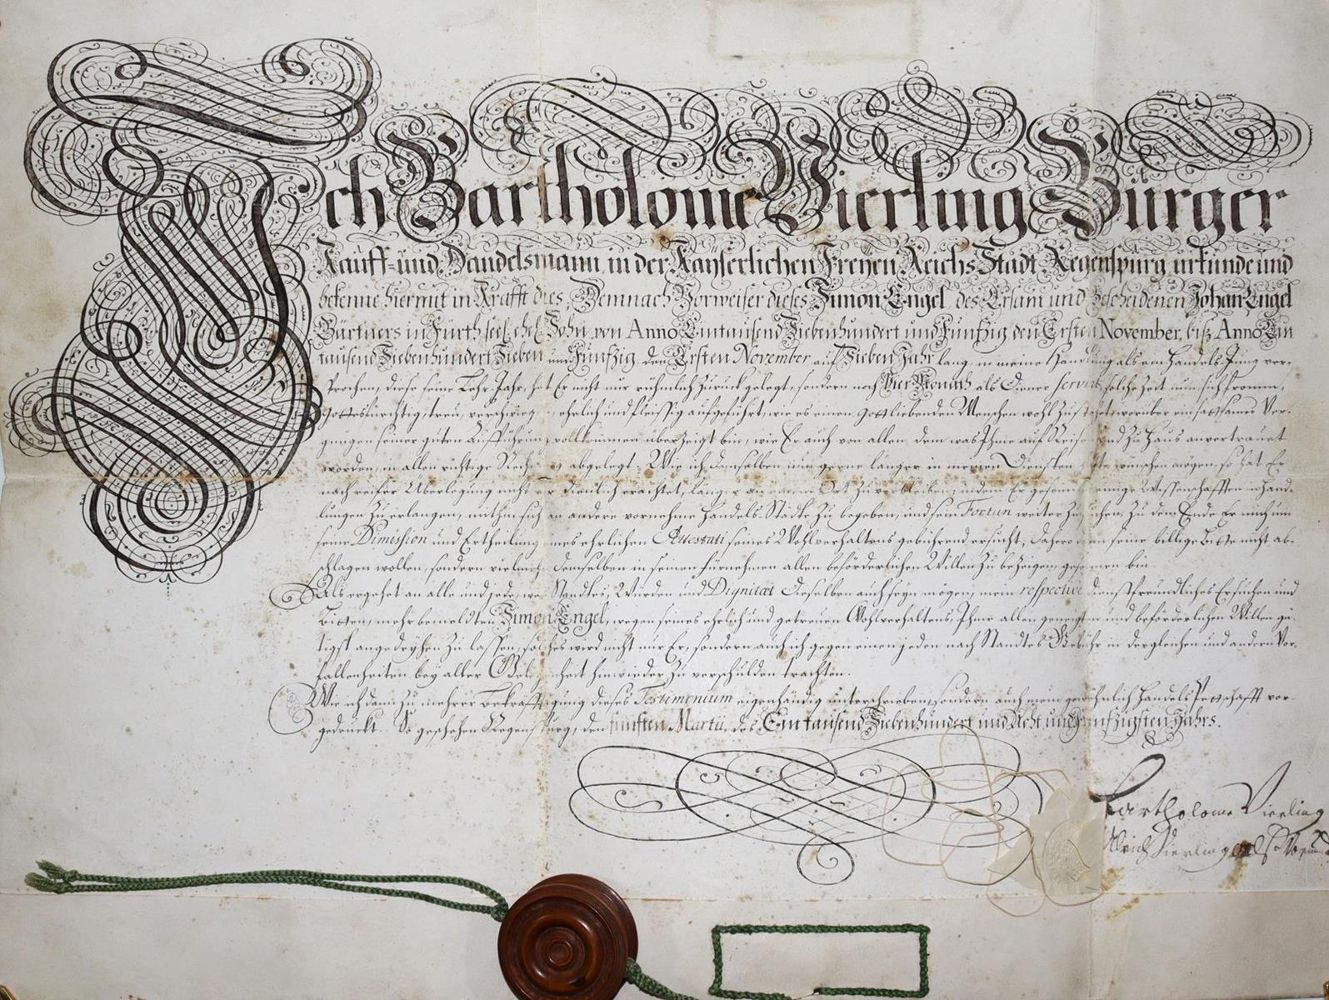 Ich Bartholome Vierling Bürger
Kauff- und Handelsmann, in der Kayserlichen Freyen Reichs Stadt Regenspurg urkunde und
bekenne hiermit in Krafft dies, Demnach Vorweiser dieses Simon Engel des Ersam und bescheidenen Johan Engel
Gärtners in Fürth seel. ehel. Sohn, von Anno Eintausend Siebenhundert und Funfzig den Ersten November, biß Anno Ein
tausend Siebenhundert Sieben und Funfzig den Ersten November auf Sieben Jahr lang in mein Handlung als ein Handels Jung ver-
sprochen, diese seine Lehr Jahr, hat Er nicht nur rühmlich zurück gelegt, sondern noch Vier Monath als Diener servirt, solche Zeit nun sich fromm,
Gottesfürchtig, treu, verschwiegen, ehrlich und fleissig aufgeführet, wie es einem Gottliebenden Menschen wohl zustehet, worüber ein sattsames Ver-
gnügen seiner guten Aufführung vollkommen überzeigt bin, wie Er auch von allen dem was Ihme auf Reisen und zu Haus anvertrauet
worden, in allen richtige Rechnung abgelegt; Wie ich denselben nun gerne länger in meinen Diensten hätte sehen mögen, so hat Er
nach reiffer Uberlegung nicht vor dienlich erachtet, länger an einem Ort zu verbleiben, indem Er gesonnen einige Wissenschafften in Hand-
lungen zu erlangen, mithin sich an andere vornehme Handels Städte zu begeben, und sein Fortun weiter zu suchen, zu dem Ende Er mich um
seine Dimission und Ertheilung eines ehrlichen Attestati seines Wohlverhaltens gebührend ersucht, dahero ihm seine billige Bitte nicht ab-
schlagen wollen, sondern vielmehr demselben in seinem fürnehmen allen beförderlichen Willen zu bezeigen gesonnen bin
Als ergehet an alle und jede, wes Standes, Würden und Dignitæt dieselben auch seyn mögen, mein respective dienstfreundliches Ersuchen und
Bitten, mehr bemeldten Simon Engel, wegen seines ehrlich und getreuen Wohlverhaltens, Ihme allen geneigten und beförderlichen Willen gü-
tigst angedeyhen zu lassen, solches wird nicht nur Er, sondern auch ich gegen einen jeden nach Standes Gebühr in dergleichen und andern Vor-
fallenheiten bey aller Gelegenheit hinwieder zu verschulden trachten.
Wie ich dann zu mehrer Bekräfftigung dieses Testimonium eigenhändig unterschrieben, sondern auch mein gewöhnlich Handels Pettschafft vor-
gedruckt. So geschehen Regenspurg, den funfften Martii, des Ein tausend Siebenhundert und Acht und Funfzigsten Jahrs.
Bartholome Vierling
Ulrich Vierling als